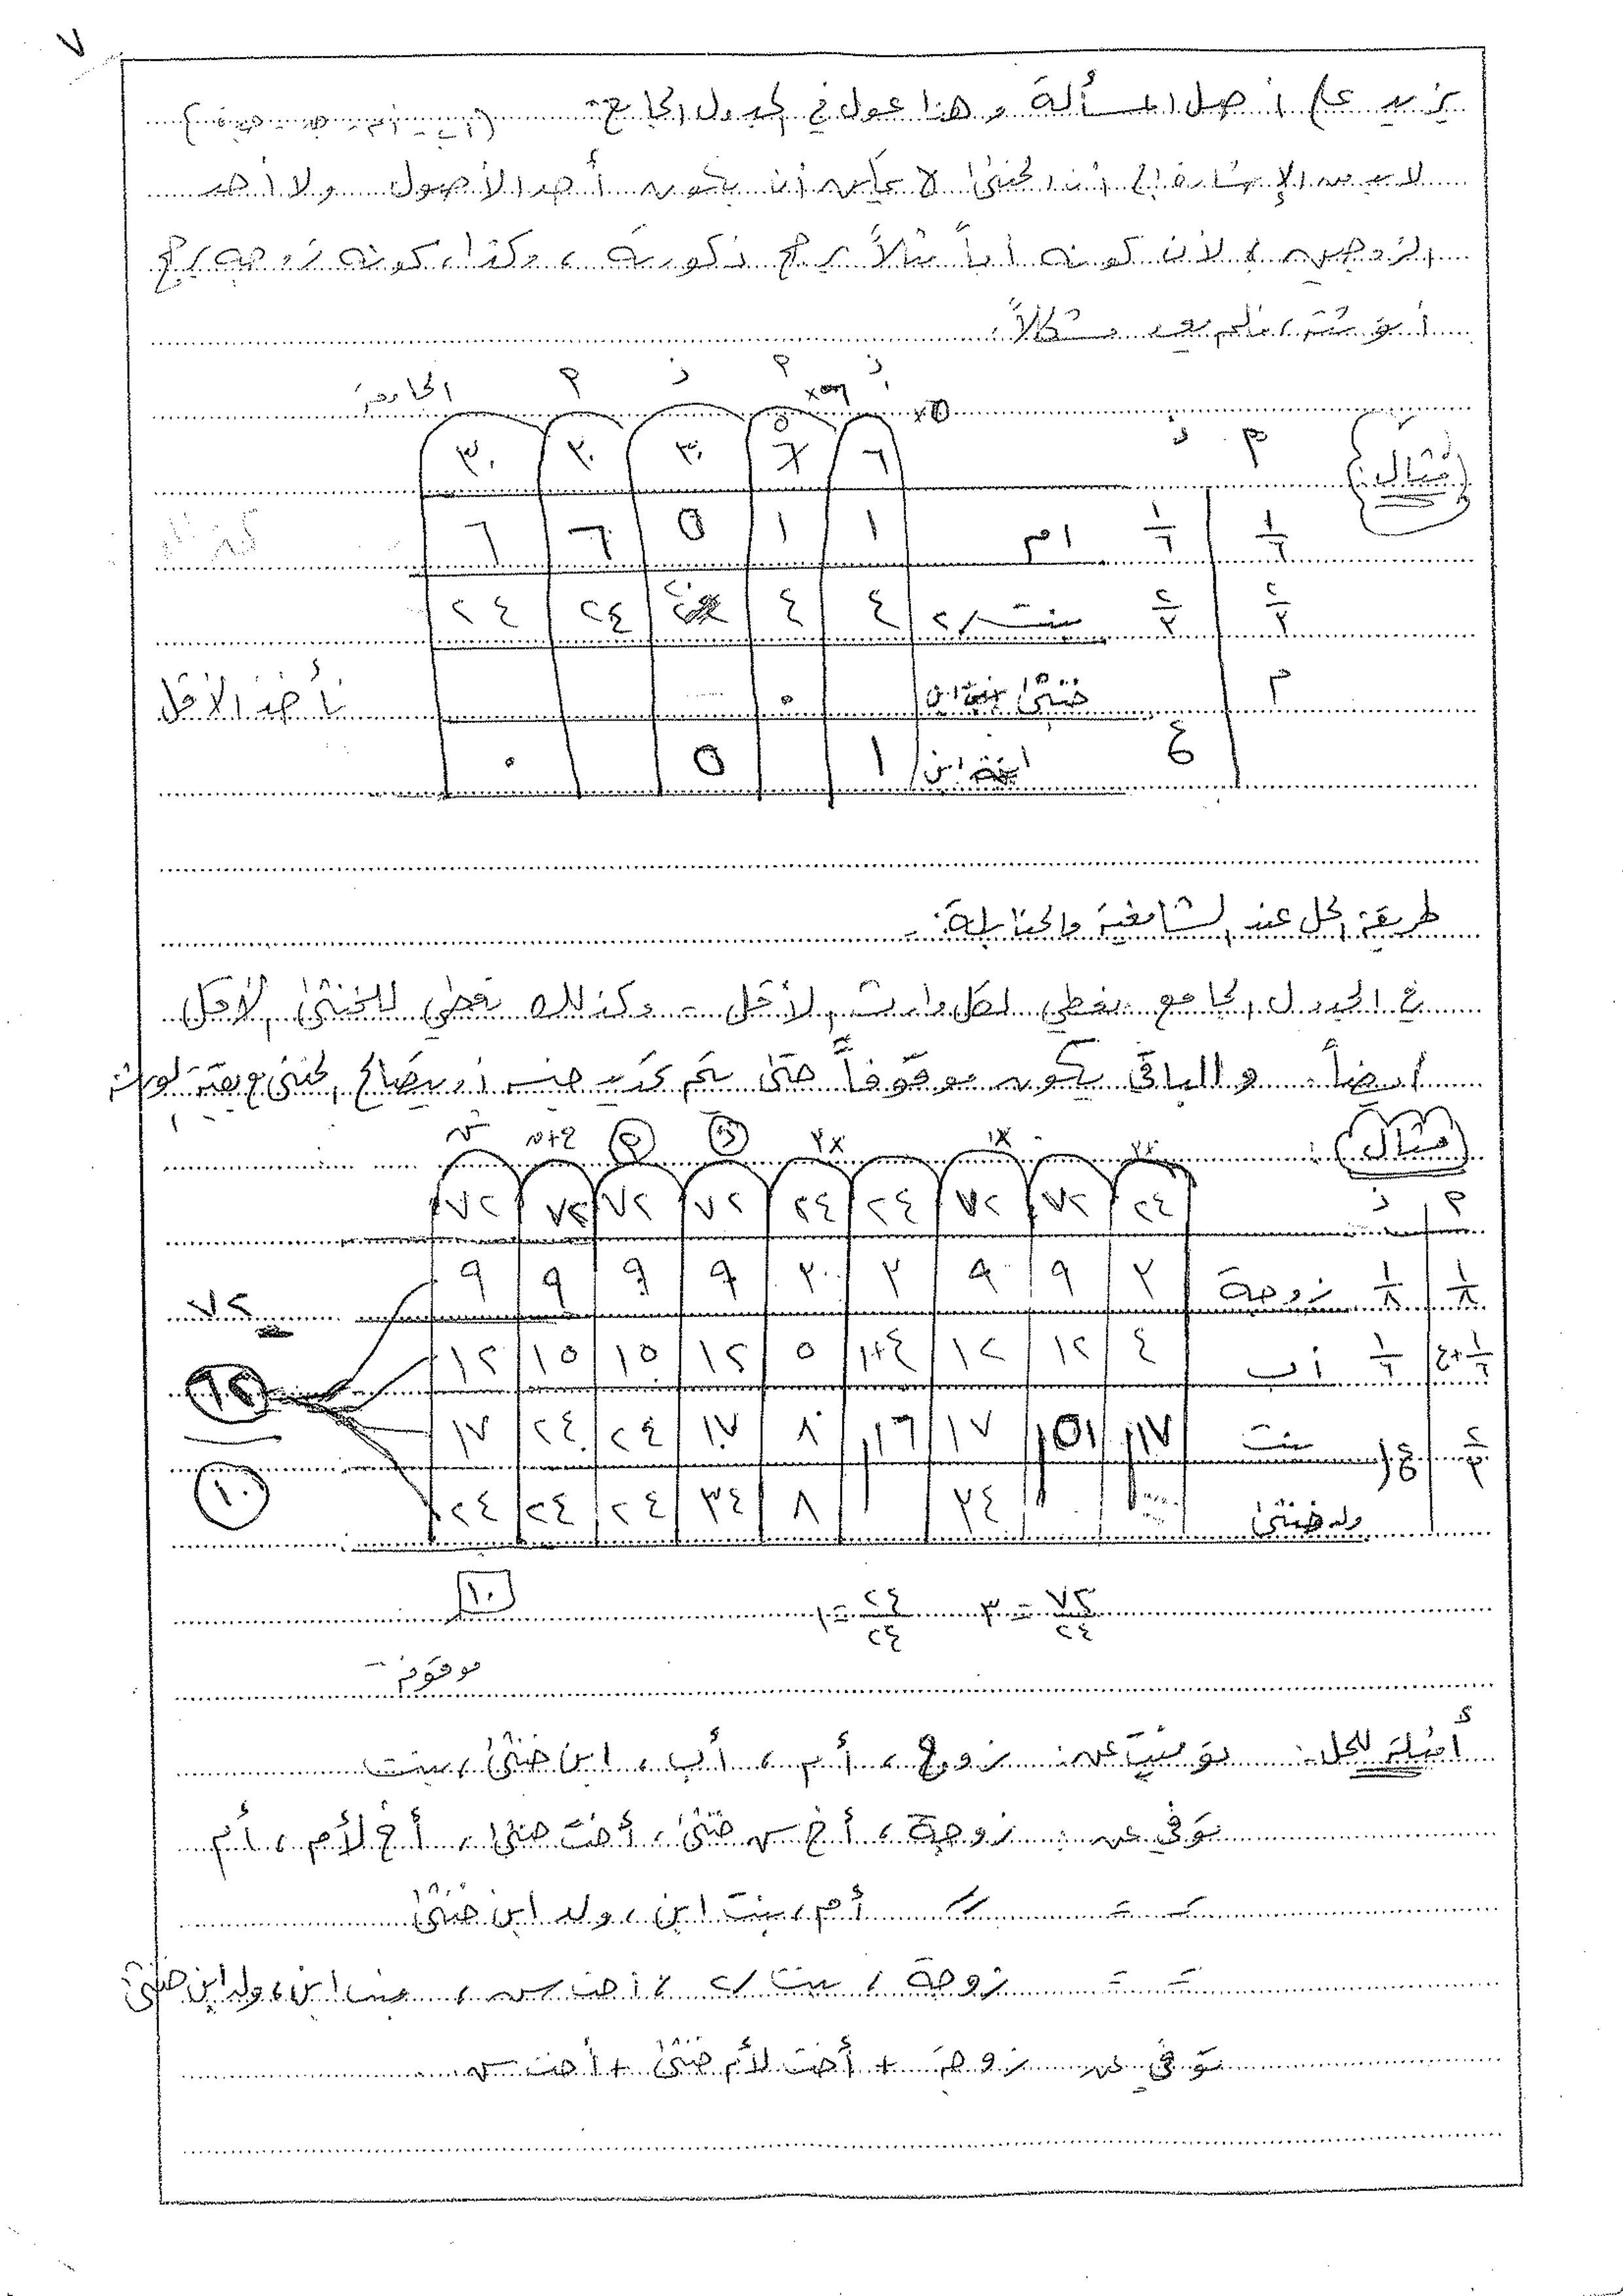 ٧
يزيد على أصل المسألة وهذا عول في الجدول الجامع
لا بد من الإشارة إلى أن الخنثى لا يمكن أن يكون أحد الأصول ولا أحد
الزوجين، لأن كونه أباً مثلاً يرجح ذكوريته، وكذا كونه زوجة يرجح
أنوثته، فلم يعد مشكلاً.
ذ م ذ م الجامعة
مثال: م ذ ٦ ٥ ٣٠ ٣٠ ٣٠
١/٦ ١/٦ ام ١ ١ ٥ ٦ ٦
٢/٣ ٢/٣ بنت/٢ ٤ ٤ ٢٤ ٢٤
م خنثى ٠ نأخذ الأقل
ع ابن ١ ٥ ٠
طريقة الحل عند الشافعية والحنابلة:
في الجدول الجامع نعطي لكل وارث الأقل - وكذلك نعطي للخنثى الأقل
أيضاً. والباقي يكون موقوفاً حتى يتم تحديد جنسه أو يتصالح الخنثى مع بقية الورثة
مثال:
م ذ ٢٤ ٧٢ ٧٢ ٢٤ ٢٤ ٧٢ ٧٢ ٧٢ ٧٢
١/٨ ١/٨ زوجة ٣ ٩ ٩ ٣ ٣ ٩ ٩ ٩ ٩ ٧٢
١/٦+ع ١/٦ أب ٤ ١٢ ١٢ ٤+١ ٥ ١٢ ١٥ ١٥ ١٢ ٦٢
٢/٣ ع بنت ١٧ ٥١ ١٧ ١٦ ٨ ١٧ ٢٤ ٢٤ ١٧
ولد خنثى ٣٤ ٨ ٣٤ ٢٤ ٢٤ ٢٤ ١٠
٧٢/٢٤ = ٣ ٢٤/٢٤ = ١ ١٠
موقوف
أمثلة للحل: توفيت عن: زوج، أم، أب، ابن خنثى، بنت
توفي عن: زوجة، أخ ش خنثى، أخت خنثى، أخ لأم، أم
= = // أم، بنت ابن، ولد ابن خنثى
= = زوجة، بنت/٢، أخت ش، بنت ابن، ولد ابن خنثى
توفي عن زوجة + أخت لأم خنثى + أخت ش